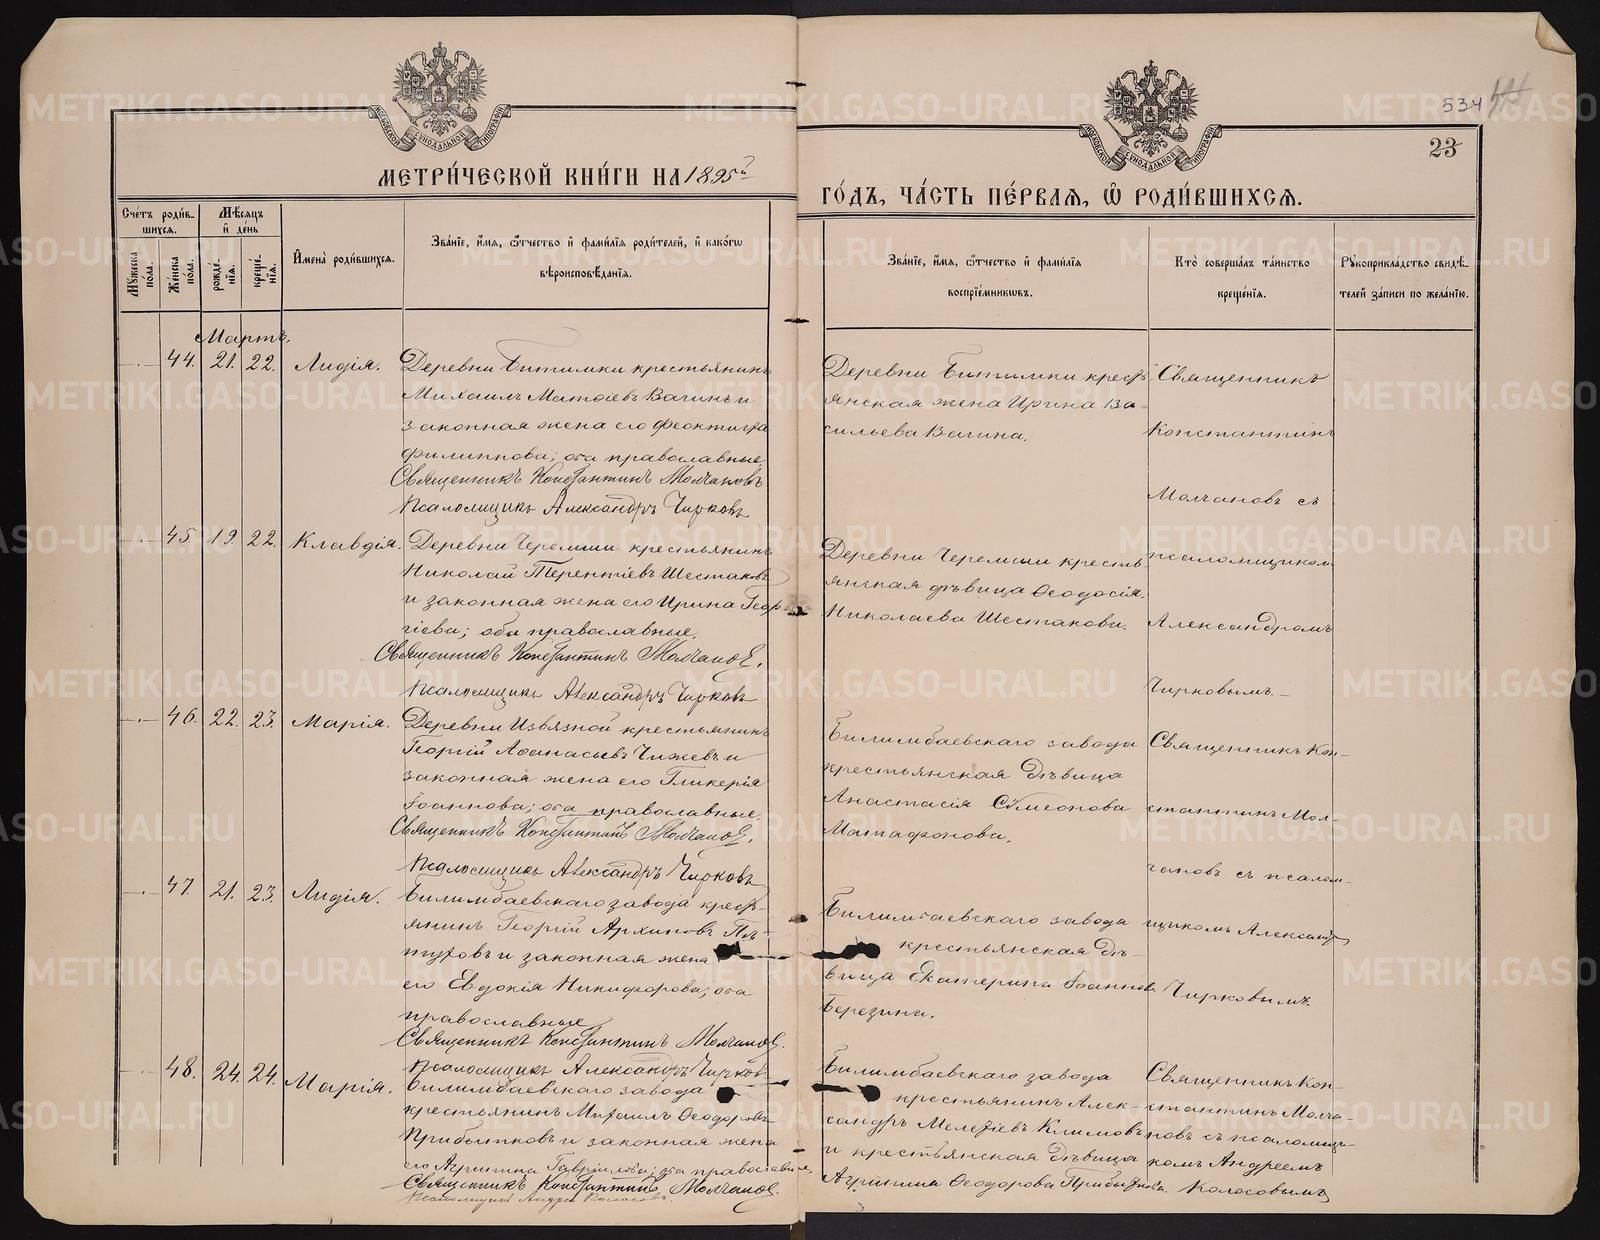 534
23
МЕТРИ́ЧЕСКОЙ КНИ́ГИ НА 1895й
ГО́ДЪ, ЧА́СТЬ ПЕ́РВАЯ, Ѽ РОДИ́ВШИХСЯ.
МОСКОВСКОЙ СѴНОДАЛЬНОЙ ТИПОГРАФІИ
МОСКОВСКОЙ СѴНОДАЛЬНОЙ ТИПОГРАФІИ
Сче́тъ роди́в-
шихся.
Мужеска пола.
Женска пола.
Мѣсяцъ
и день
рожде́-
нія.
креще́-
нія.
Имена̀ роди́вшихся.
Зва́ніе, и́мя, ѻ́тчество и фами́лія роди́телей, и како́гѡ
вѣроисповѣ́данія.
Зва́ніе, и́мя, ѻ́тчество и фами́лія
воспріе́мникѡвъ.
Кто̀ соверша́лъ та́инство
креще́нія.
Рукоприкла́дство свидѣ́-
телей за́писи по жела́нію.
Мартъ.
44. 21. 22. Лидія.
Деревни Битимки крестьянинъ
Михаилъ Матѳіевъ Вагинъ и
законная жена его Феоктиста
Филиппова; оба православные.
Священникъ Константинъ Молчановъ
Псаломщикъ Александръ Чирковъ
Деревни Битимки кресть-
янская жена Ирина Ва-
сильева Вагина.
Священникъ
Константинъ
Молчановъ съ
псаломщикомъ
Александромъ
Чирковымъ.
45. 19. 22. Клавдія.
Деревни Черемши крестьянинъ
Николай Терентіевъ Шестаковъ
и законная жена его Ирина Геор-
гіева; оба православные.
Священникъ Константинъ Молчановъ.
Псаломщикъ Александръ Чирковъ
Деревни Черемши кресть-
янская дѣвица Ѳеодосія
Николаева Шестакова.
46. 22. 23. Марія.
Деревни Извязной крестьянинъ
Георгій Аѳанасьевъ Чижевъ и
законная жена его Гликерія
Іоаннова; оба православные.
Священникъ Константинъ Молчановъ.
Псаломщикъ Александръ Чирковъ
Билимбаевскаго завода
крестьянская дѣвица
Анастасія Сѵмеонова
Матафонова.
Священникъ Кон-
стантинъ Мол-
чановъ съ псалом-
щикомъ Александр
Чирковымъ.
47. 21. 23. Лидія.
Билимбаевскаго завода кресть-
янинъ Георгій Архиповъ Пѣ-
туховъ и законная жена
его Евдокія Никифорова; оба
православные
Священникъ Константинъ Молчановъ.
Псаломщикъ Александръ Чирковъ
Билимбаевскаго завода
крестьянская дѣ-
вица Екатерина Іоаннов.
Березина.
48. 24. 24. Марія.
Билимбаевскаго завода
крестьянинъ Михаилъ Ѳеодоровъ
Прибытковъ и законная жена
его Агриппина Гавріилова; оба православные
Священникъ Константинъ Молчановъ.
Псаломщикъ Андрей Колосовъ.
Билимбаевскаго завода
крестьянинъ Алек-
сандръ Мелетіевъ Климовъ
и крестьянская дѣвица
Агриппина Ѳеодорова Прибыткова.
Священникъ Кон-
стантинъ Молча-
новъ съ псаломщи-
комъ Андреемъ
Колосовымъ
METRIKI.GASO-URAL.RU